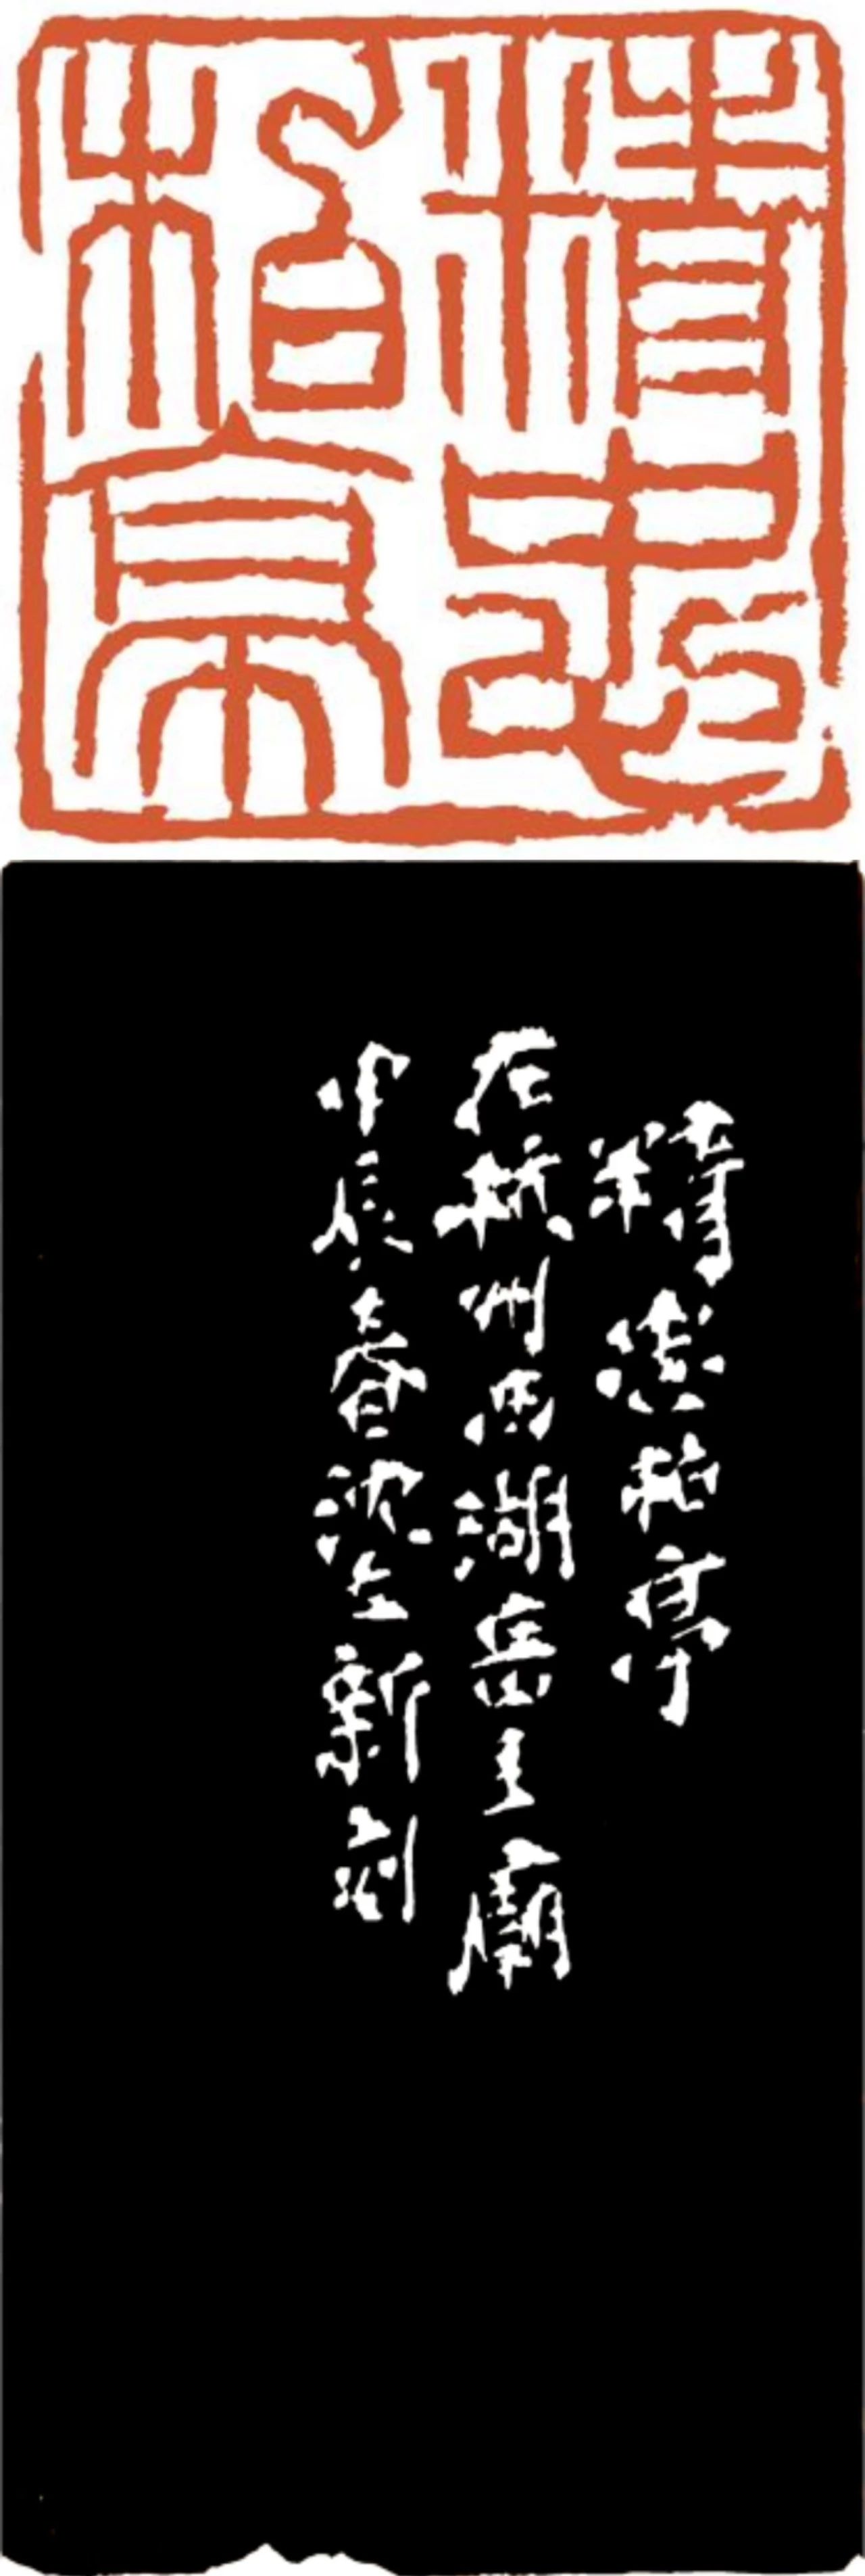 精忠
柏亭
精忠柏亭
在杭州西湖岳王廟
甲辰春沈立新刻